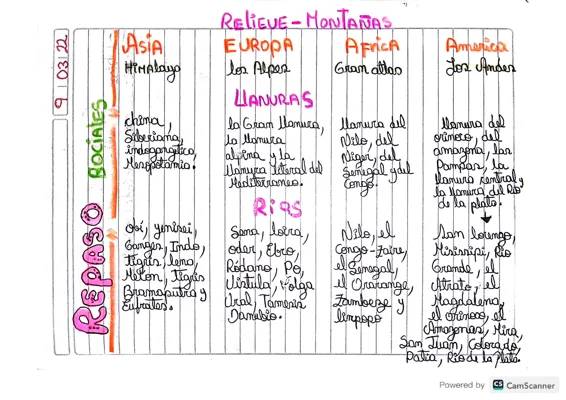 RELIEVE - MONTAÑAS
9 | 03 | 22
REPASO
SOCIALES
ASIA
HIMAlaya
EUROPA
los Alpes
AFRICA
Gran atlas
America
Los Andes
LLANURAS
china,
Siberiana,
indogangetica,
Mesopotamia.
la Gran llanura,
la llanura
alpina y la
llanura literal del
Mediterraneo.
llanura del
Nilo, del
Niger, del
Senegal y del
Congo.
llanura del
orinoco, del
amazona, las
Pampas, la
llanura central y
la llanura del Rio
de la plata.
RIOS
Obi, yenisei,
Ganges, Indo,
Tigris, lena,
Tigris
Bramaputra y
Eufrates.
Sena, loira,
oder, Ebro,
Ródano, Po,
Vistula, Volga
Ural, Tamesis
Danubio.
Nilo, el
Congo-Zaire,
el Senegal,
el Orange,
Zambeze y
limpopo
San lorenzo,
Misisipi, Rio
Grande, el
Atrato, el
Magdalena,
el orinoco, el
Amazonas, Mira,
San Juan, Colorado,
Patia, Rio de la Plata.
Powered by CS CamScanner